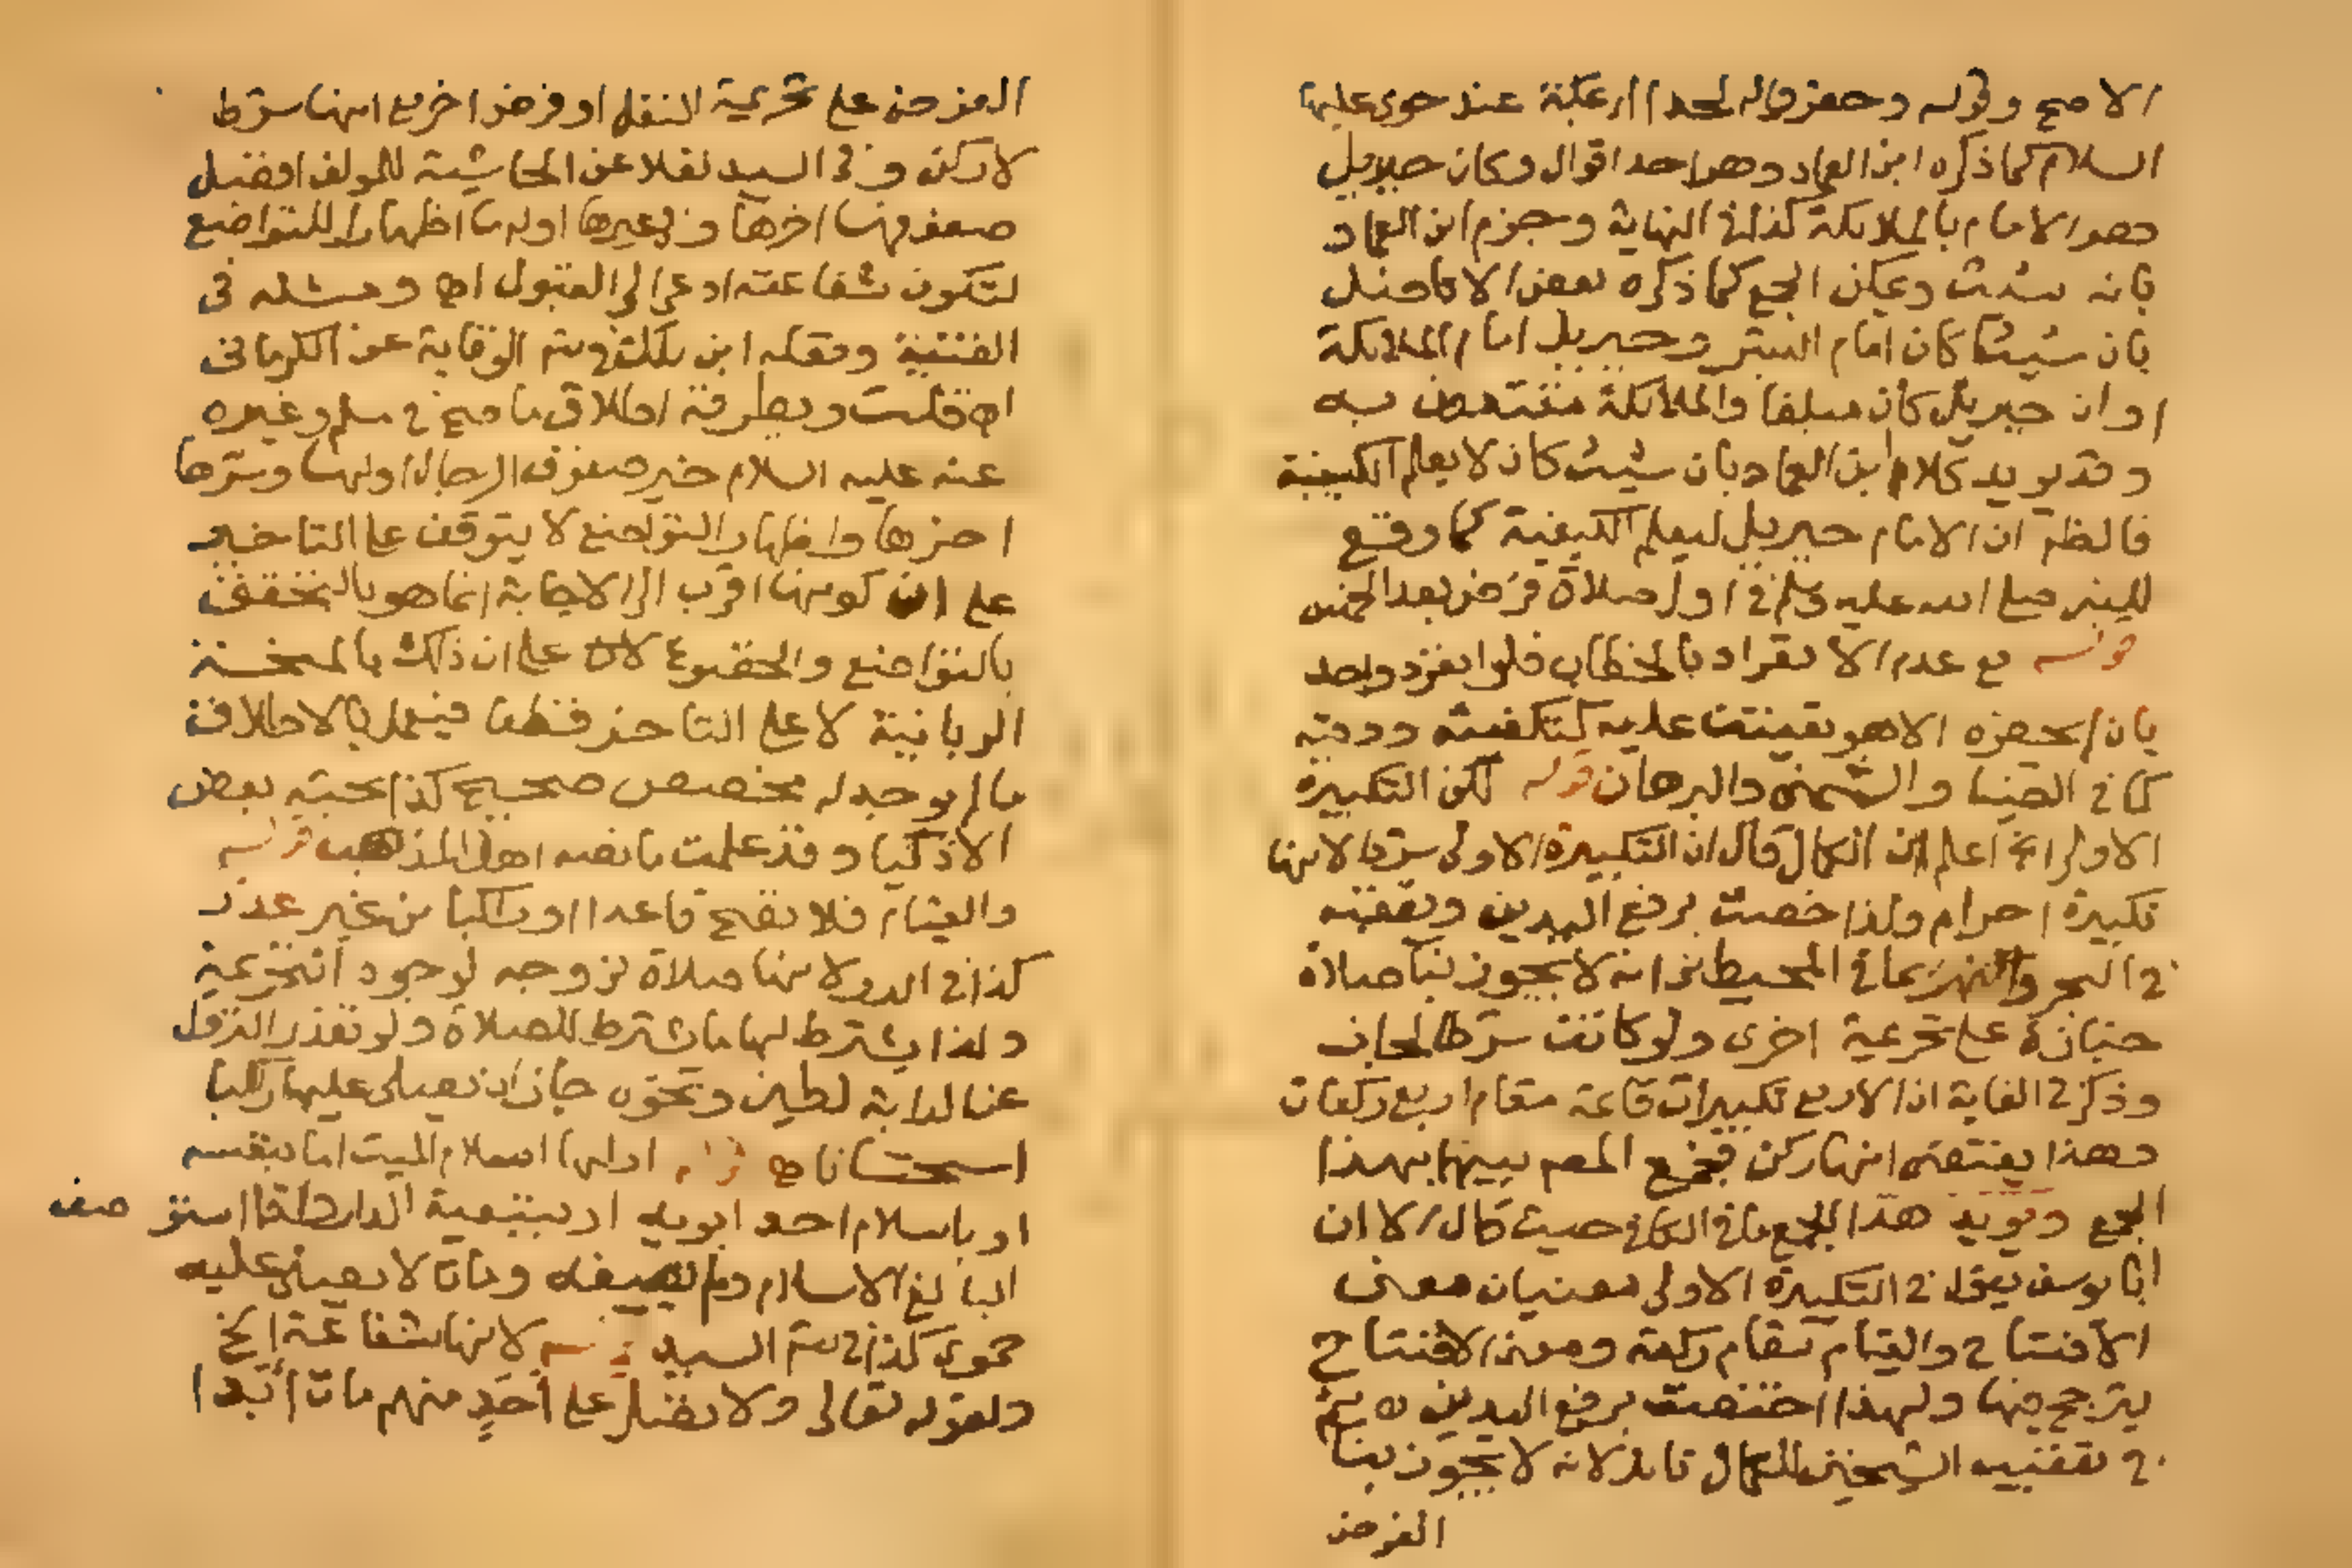 الاصح وقوله وحفر واله لحد ا اربمكة عند حوى عليها
السلام كما ذكره ابن العماد وهو احد اقوال وكان جبريل
هو الامام بالملايكة كذا في النهاية وجزم ابن العماد
بانه شيث ويمكن الجمع كما ذكره بعض الافاضل
بان شيثا كان امام البشر وجبريل امام الملايكة
او ان جبريل كان مبلغا والملايكة مقتدون به
وقد يويد كلام ابن العماد بان شيث كان لا يعلم الكيفية
فالظم ان الامام جبريل ليعلم الكيفية كما وقع
للنبي صلى الله عليه وسلم في اول صلاة فرض بعد الخمس
قوله مع عدم الانفراد بالخطاب فلو انفرد واحد
بان لم يحضره الا هو تعينت عليه كتكفينه ودفنه
كما في الضيا والشمني والبرهان قوله لكن التكبيرة
الاولى الخ اعلم ان الكمال قال ان التكبيرة الاولى شرط لانها
تكبيرة احرام ولذا خصت برفع اليدين وتعقبه
في البحر والنهر بما في المحيط من انه لا يجوز بنا صلاة
جنازة على تحريمة اخرى ولو كانت شرطا لجاز
وذكر في الغاية ان الاربع تكبيرات قائمة مقام اربع ركعات
وهذا يقتضي انها ركن فجمع المصم بينهما بهذا
الجمع ويويد هذا الجمع ما في الكافي حيث قال الا ان
ابا يوسف يقول في التكبيرة الاولى معنيان معنى
الافتتاح والقيام مقام ركعة ومعنى الافتتاح
يترجح فيها ولهذا اختصت برفع اليدين اه ثم
في تعقيب الشيخين للكمال تامل لانه لا يجوز بنا
الفرض
الفرض على تحريمة النفل او فرض اخر مع انها شرط
لا ركن وفي السيد نقلا عن الحاشية للمولف افضل
صفوفها اخرها وفي غيرها اولها اظهارا للتواضع
لتكون شفاعته ادعى الى القبول اه ومثله في
القنية ونقله ابن ملك في شم الوقاية عن الكرماني
اه قلت ويطرقه اطلاق ما صح في مسلم وغيره
عنه عليه السلام خير صفوف الرجال اولها وشرها
اخرها واظهار التواضع لا يتوقف على التاخير
على ان كونها اقرب الى الاجابة انما هو بالتحقق
بالتواضع والخضوع على ان ذلك بالمحنة
الربانية لا على التاخر فقط فيعمل بالاطلاق
ما لم يوجد له مخصص صحيح كذا بحثه بعض
الاذكيا وقد علمت ما نصه اهل المذهب قوله
والقيام فلا تصح قاعدا او راكبا من غير عذر
كذا في الدر ولانها صلاة من وجه لوجود التحريمة
ولذا يشترط لها ما يشترط للصلاة ولو تعذر النزول
عن الدابة لطين ونحوه جاز ان يصلى عليها راكبا
استحسانا اه قوله اولها اسلام الميت اما بنفسه
او باسلام احد ابويه او بتبعية الدار
البالغ الاسلام ولم يصفه ومات لا يصلى عليه
حموي كذا في شم السيد قوله لانها شفاعة الخ
ولقوله تعالى ولا تصل على أحدٍ منهم مات أبدا